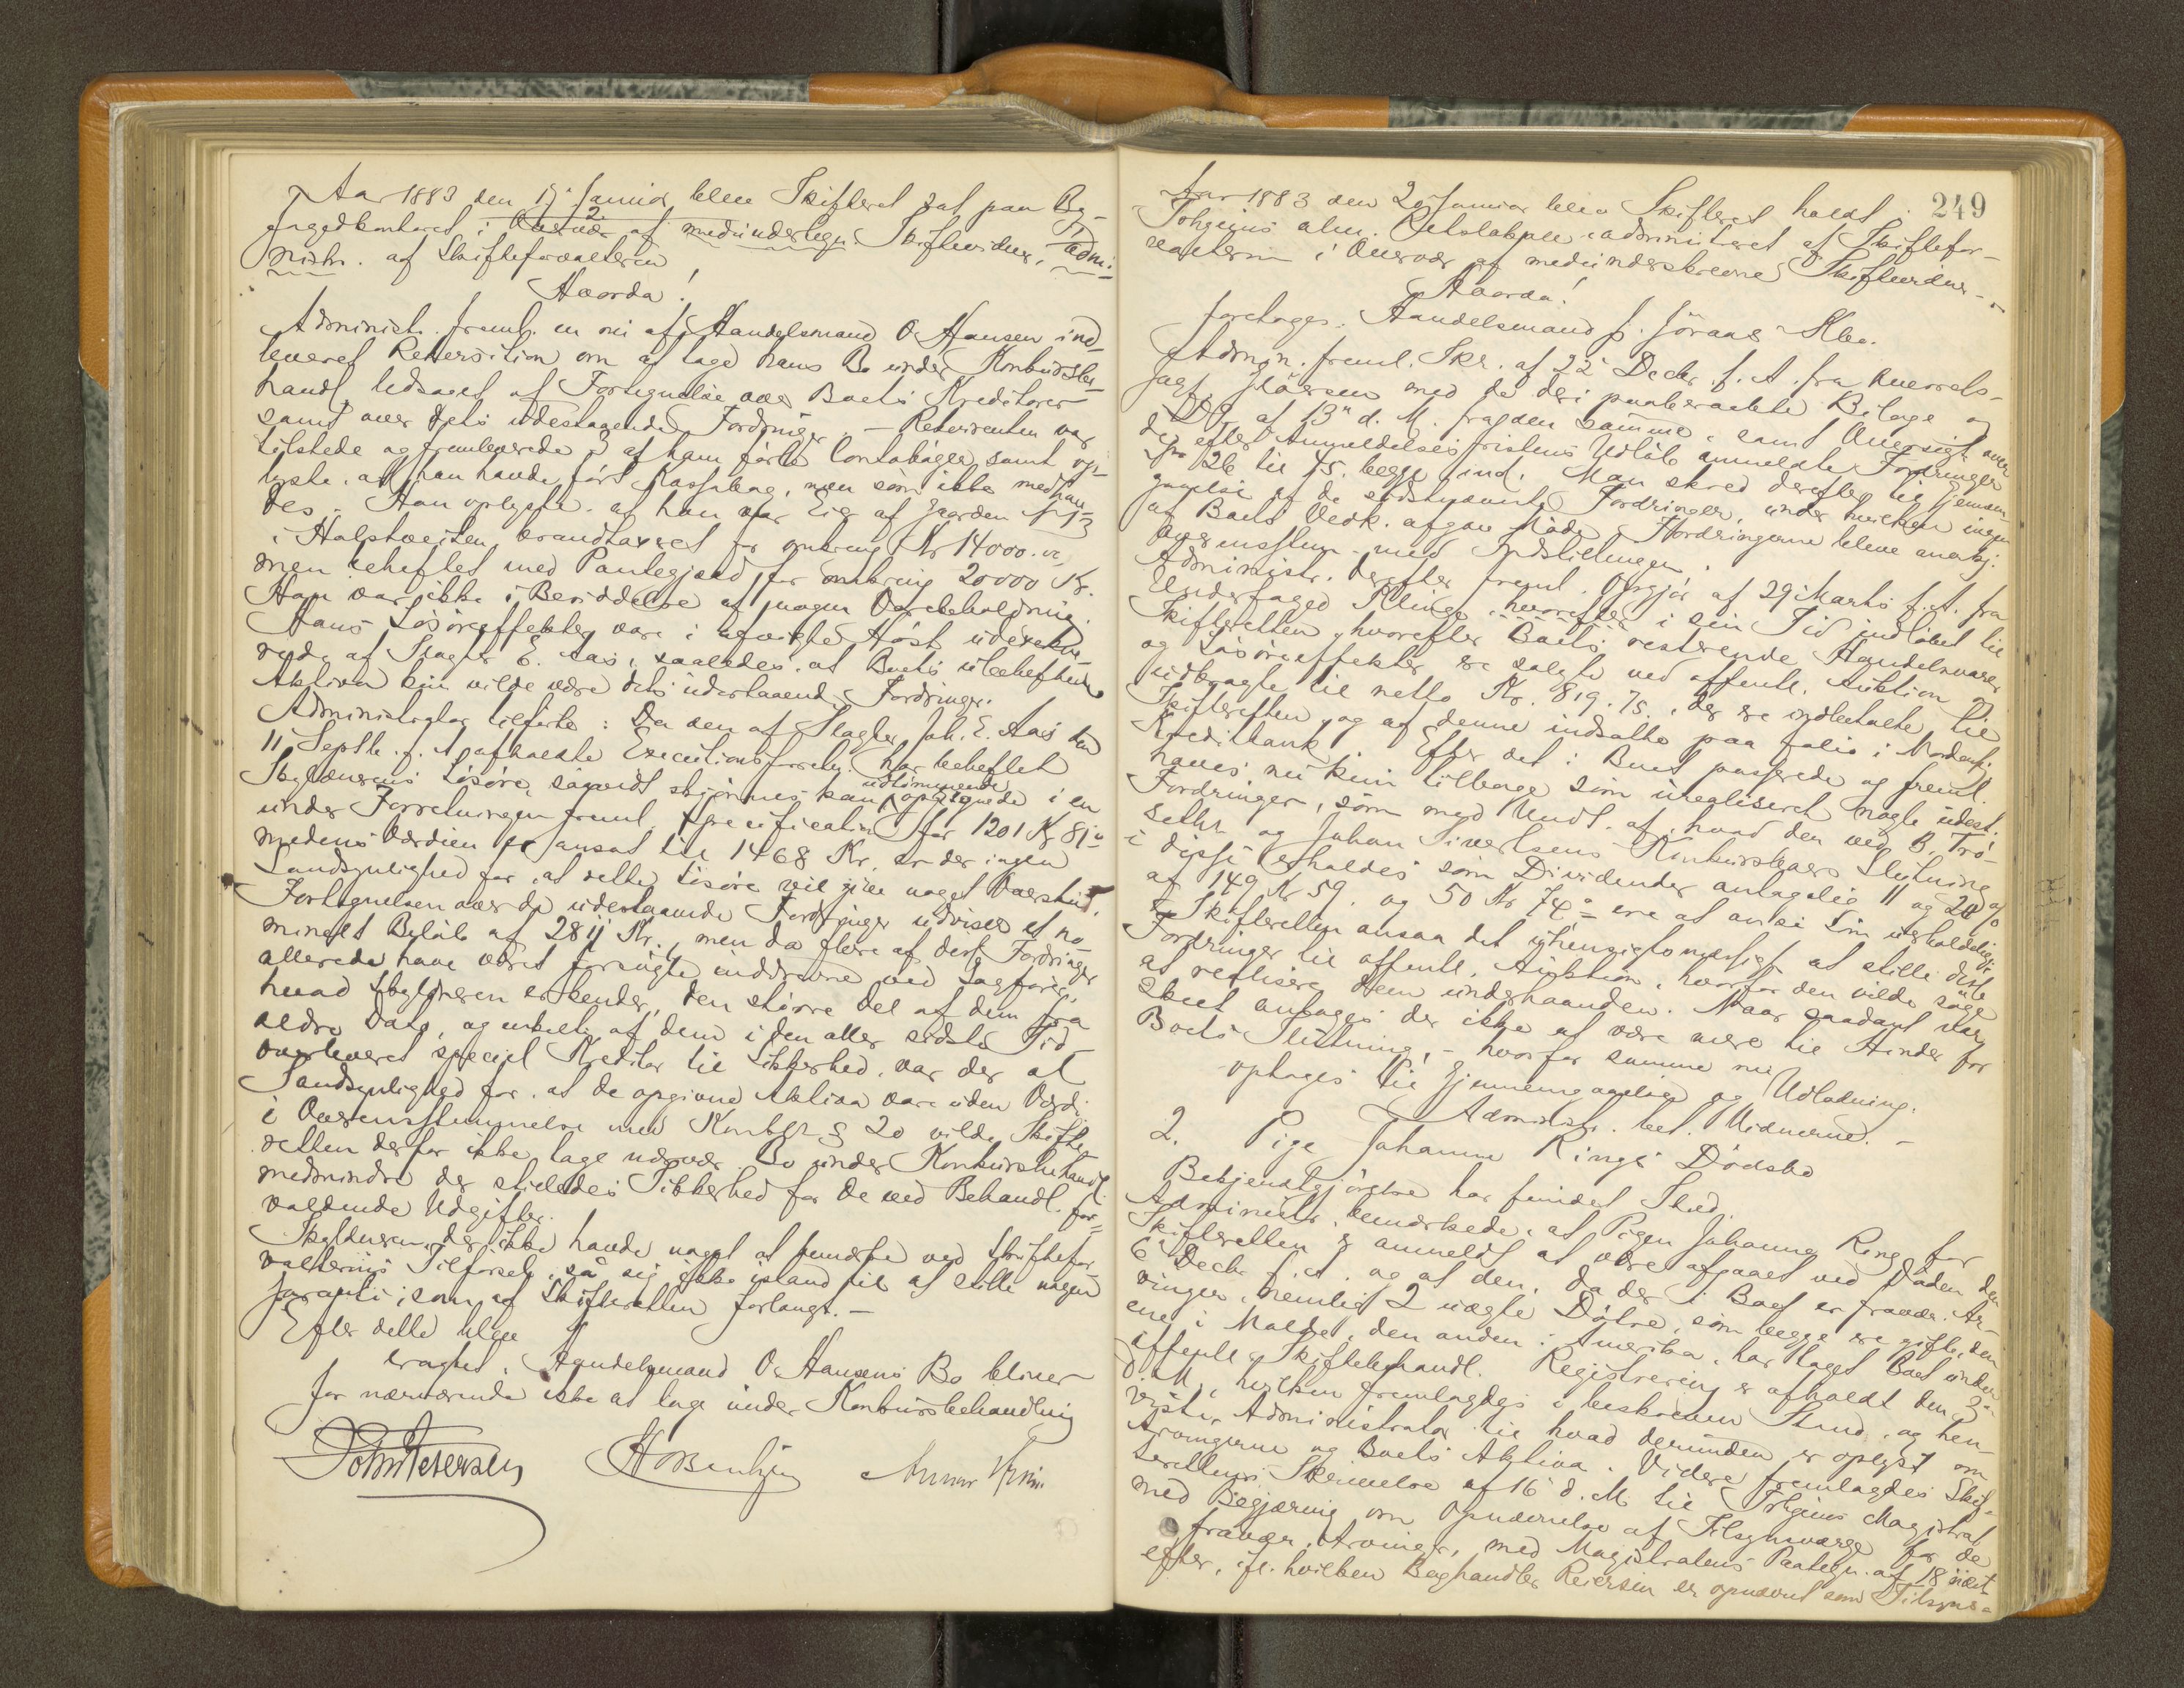 Aar 1883 den 19 Januar blev Skifteret sat paa By-
fogedkontoret i Overvær af 2 medunderlegn. Skiftevidner, adm:
nistr. af Skifteforvalteren
Hvorda!
Administr. freml. en ni af Handelsmand O Hansen ind-
leveret Rekvisition om at tage hans Bo under Konkursbe-
handl. ledsaget af Fortegnelse over Boets Kreditorer
samt over dets udestaaende Fordringer. - Rekvirenten var
tilstede og fremleverede 3 af ham førte Contobøger samt op-
lyste, at han havde ført Kassabog, men som ikke medhav-
des. Han oplyste, at han var Eier af Gaarden
i Holstveiten brandtaxeret for omkring Kr 14000.
men beheftet med Pantegjæld for omkring 20000 Kr.
Han var ikke i Besiddelse af nogen Varebeholdning.
Hans Løsøreeffekter vare i afvigte Høst udexekve-
rede af Slagter E. Aas, saaledes at Boets ubeheftede
Aktiva kun vilde være dets udestaaende Fordringer.
Administrator tilførte: Da den af Slagter Joh. E. Aas den
11 Septbr. f. A. afholdte Executionsforretn. har beheftet
Skyldnerens Løsøre, såvidt skjønnes kan, udtømmende optegnede i en
under Forretningen freml. Specification for 1201 Kr 81 ø
medens Værdien er ansat til 1468 Kr, er der ingen
Sandsynlighed for, at dette Løsøre vil give noget Overskud.
Fortegnelsen over de udestaaende Fordringer udviser et no-
minelt Beløb af 2811 Kr., men da flere af disse Fordringer
allerede have været forsøgte inddrevne ved Sagfører,
hvad Skyldneren erkender, den større Del af dem fra
ældre Dato, og enkelte af dem i den aller sidste Tid
overleveret speciel Kreditor til Sikkerhed, var der al
Sandsynlighed for, at de opgivne Aktiva vare uden Værdi.
i Overensstemmelse med Konkl. § 20 vilde Skifte-
retten derfor ikke tage nærvær. Bo under Konkursbehandl.
medmindre der stilledes Sikkerhed for de ved Behandl. for-
voldende Udgifter.
Skyldneren, der ikke havde noget at bemærke ved Skiftefor-
valterens Tilførsel, så sig ikke istand til at stille nogen
Garanti, som af Skifteretten forlangt. -
Efter dette blev
eragtet: Handelsmand O Hansens Bo bliver
for nærværende ikke at tage under Konkursbehandling
John Petersen
249
Aar 1883 den 20 Januar blev Skifteret holdt i
Tolginus alm. Retslokale, administreret af Skiftefor-
valteren i Overvær af medunderskrevne Skiftevidner.
Hvorda!
foretoges: Handelsmand J. Göraas Kbo.
Admin. freml. Skr. af 22 Decbr. f. A. fra Overrets-
sagf. Iversen med de deri paaberaabte Bilage og
Do af 13 d. M. fra den samme, samt Oversigt over
de efter Anmeldelsesfristens Udløb anmeldte Fordringer
No 26 til 45 begge incl. Man skred derefter til Gjennem-
gaaelse af de sidstnævnte Fordringer, under hvilken ingen
af Boets Vedk. afgav Møde. Fordringerne bleve anerkj.
overensstem. med Indstillingen.
Administr. derefter freml. Opgjør af 29 Marts f. A. fra
Underfoged Klinge, hvorefter i sin Tid indløbet til
Skifteretten, hvorefter Boets resterende Handelsvarer
og Løsøreeffekter ere solgte ved offentl. Auktion og
udbragte til netto Kr. 819.75, der ere indbetalte til
Skifteretten, og af denne indsatte paa folio i Nordenfj.
Kreditbank. Efter det i Boet passerede og freml.
haves nu kun tilbage som urealiseret nogle udest.
Fordringer, som med Undt. af, hvad den ved B. Trö-
seths og Johan Siverlsens Konkursboers Slutning
i disse erholdes som Dividender antagelig 11 og 20 %
af 149 Kr 59. og 50 Kr 74 ø ere at anse som uerholdelige
Skifteretten ansaa det uhensigtsmæssigt at stille disse
Fordringer til offentl. Auktion, hvorfor den vilde søge
at realisere dem underhaanden. Naar saadant var
skeet antages der ikke at være mere til Hinder for
Boets Slutning, - hvorfor samme nu
optages til Gjennemgaaelse og Udlodning.
Administr. bet. Vidnerne. -
2. Pige Johanne Rings Dødsbo
Bekjendtgjørelse har fundet Sted.
Administr. bemærkede, at Pigen Johanna Ring for
Skifteretten er anmeldt at være afgaaet ved Døden den
6 Decbr f. A. og at den, da der i Boet er fravær. Ar-
vinger, nemlig 2 uægte Døtre, som begge ere gifte, den
ene i Molde, den anden i Amerika, har taget Boet under
offentl. Skiftebehandl. Registrering er afholdt den 3
d. M., hvilken fremlagdes i beskreven Stand, og hen-
viste Administrator til hvad derunder er oplyst om
Arvingerne og Boets Aktiva. Videre fremlagdes Skif-
terettens Skrivelse af 16 d. M. til Tolginus Magistrat
med Begjæring om Opnævnelse af Tilsynsværge for de
fravær. Arvinger, med Magistratens Paategn. af 18 næst-
efter, if. hvilken Boghandler Reiersen er opnævnt som Tilsyns-